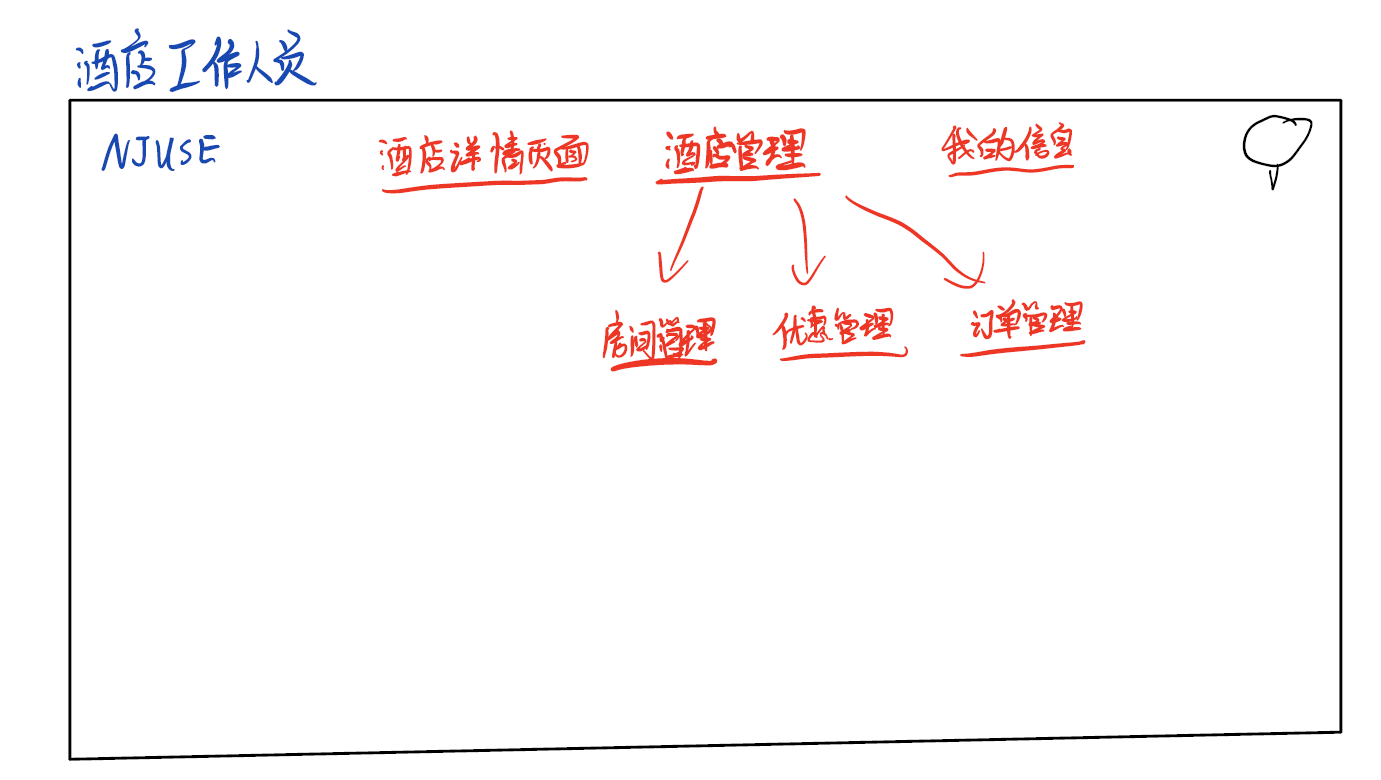 酒店工作人员
NJUSE 酒店详情页面 酒店管理 我的信息
房间管理 优惠管理 订单管理